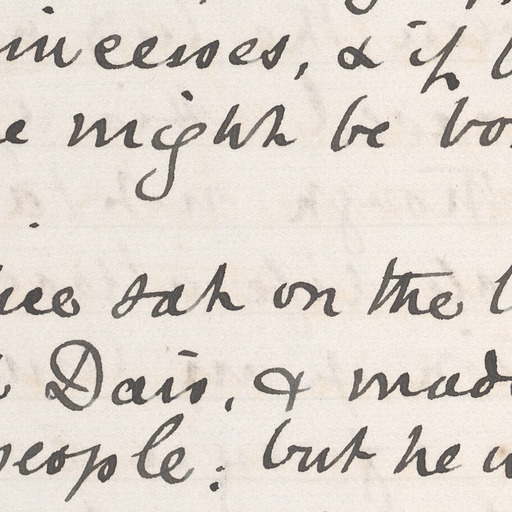 incesses, & if
e might be bo
sat on the
Dais, & mad
people: but he